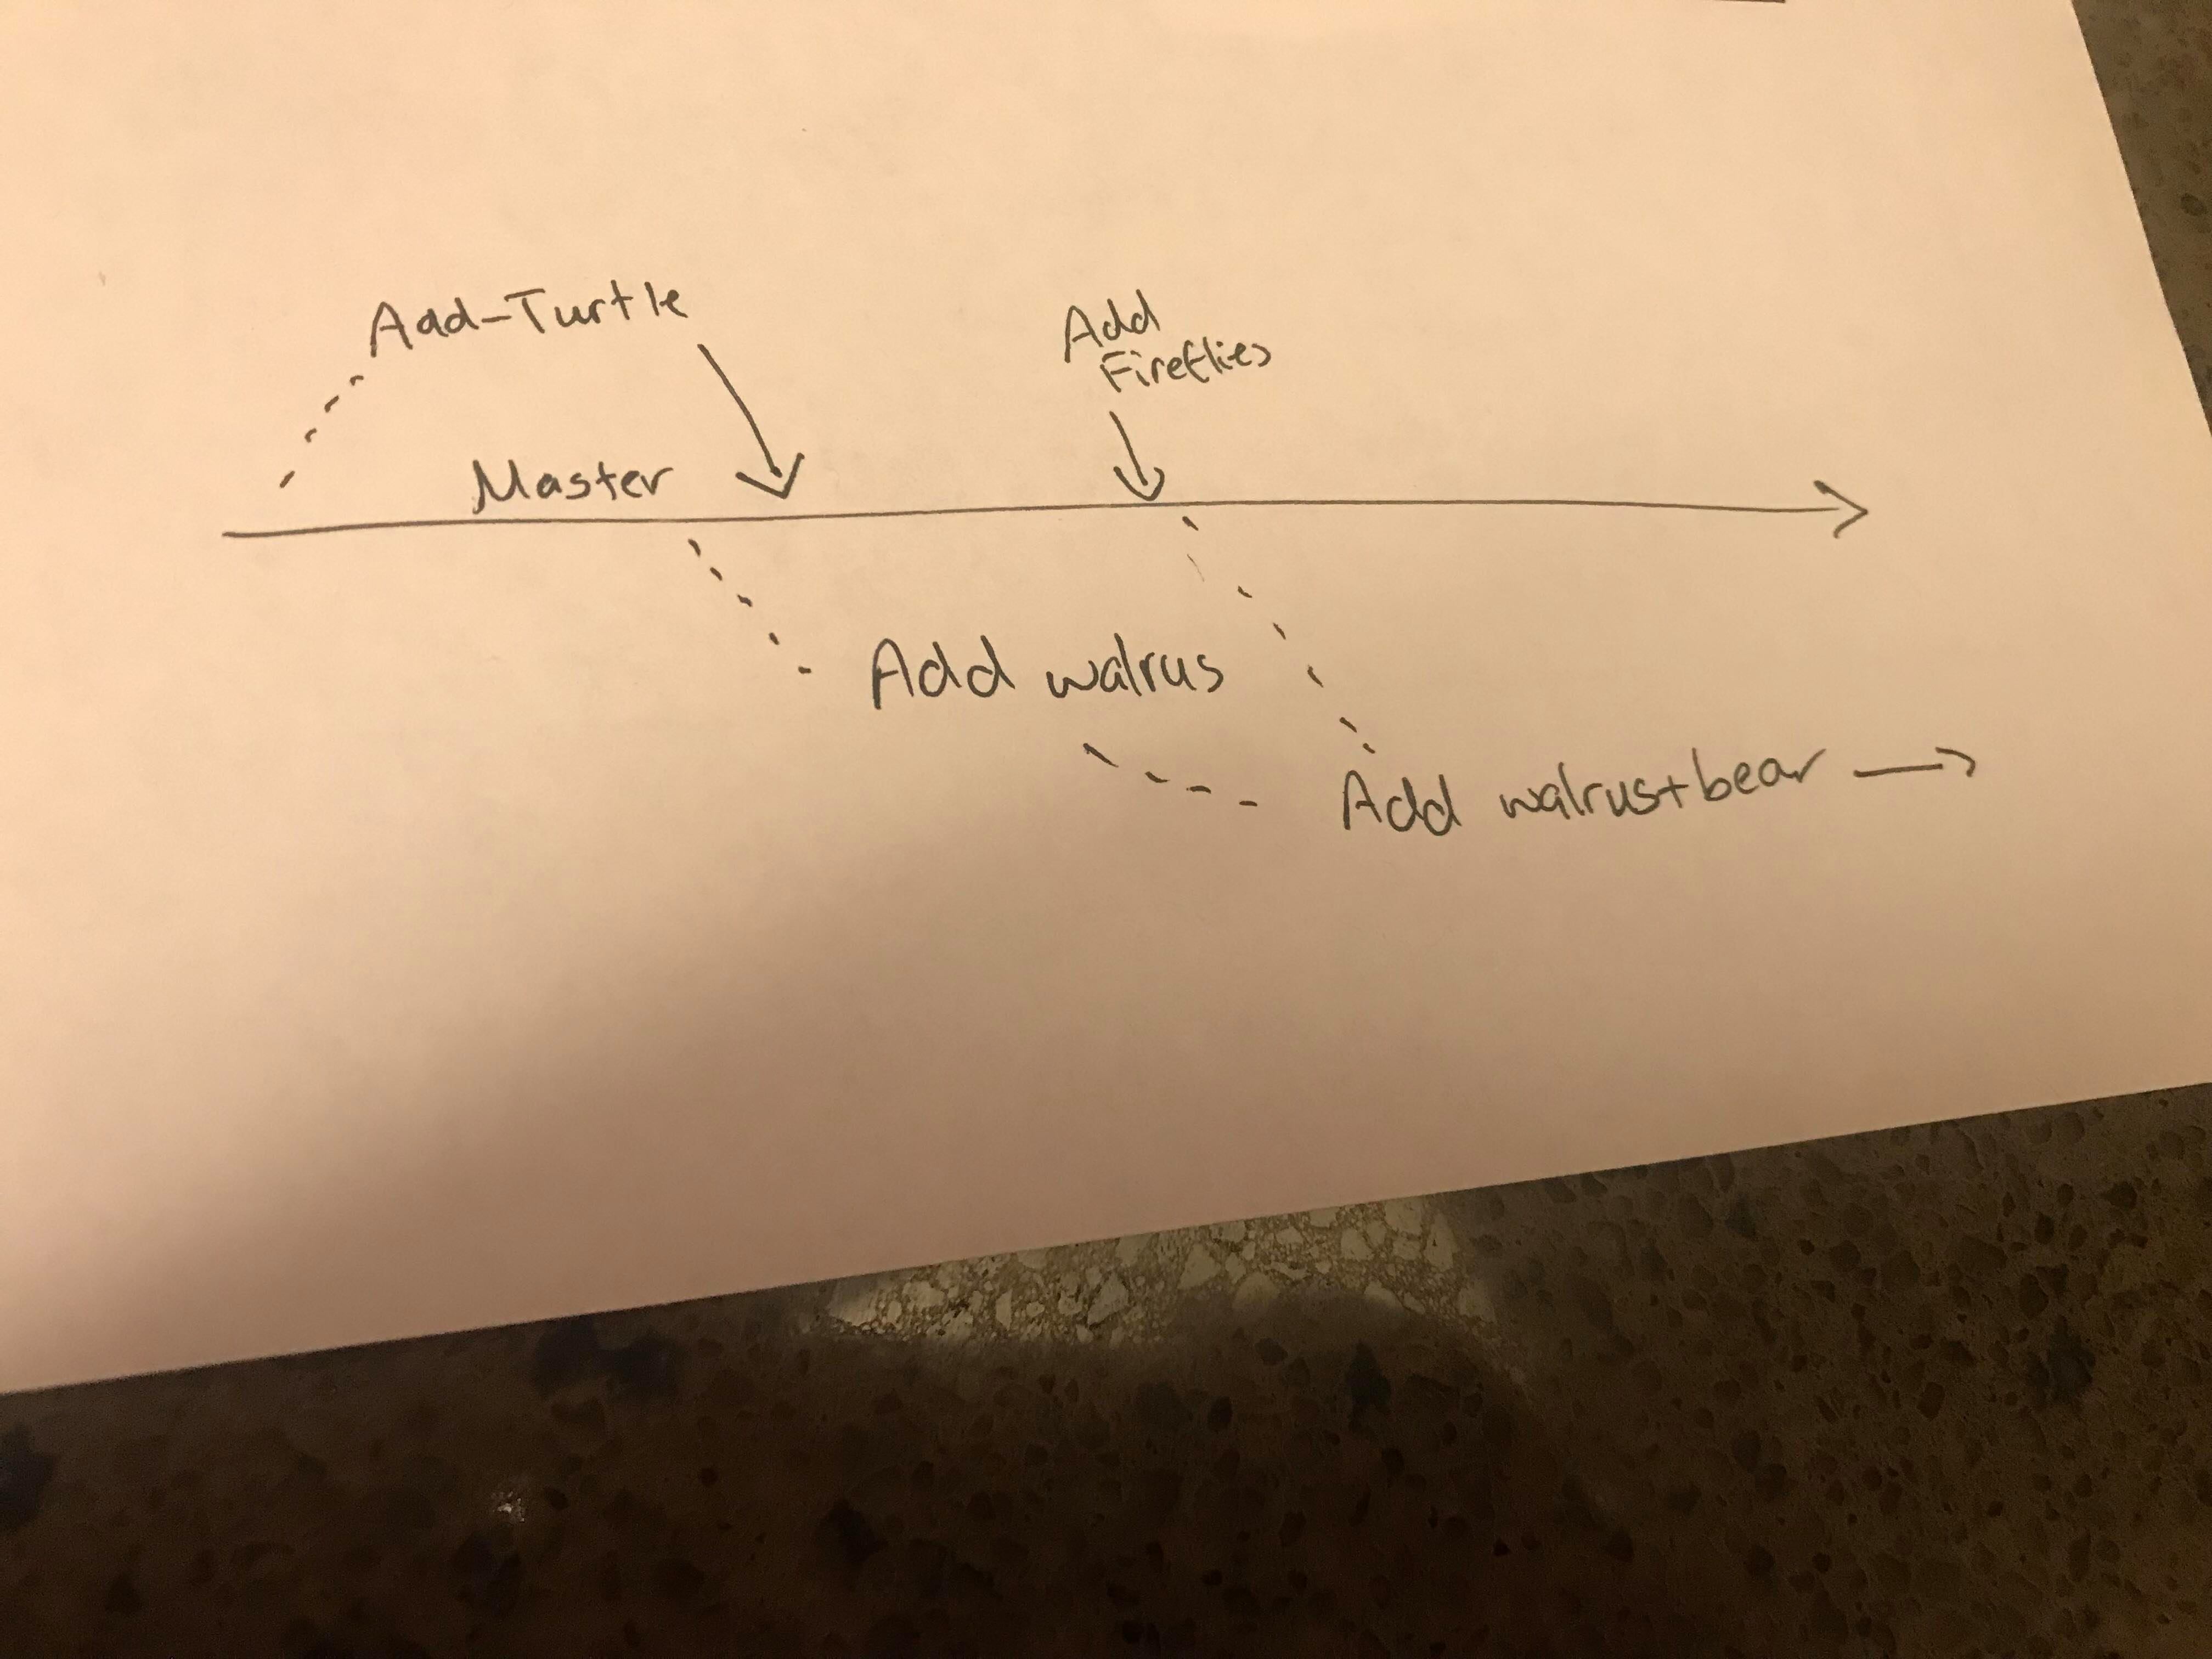 Add-Turtle
Add
Fireflies
Master
Add walrus
Add walrus+bear